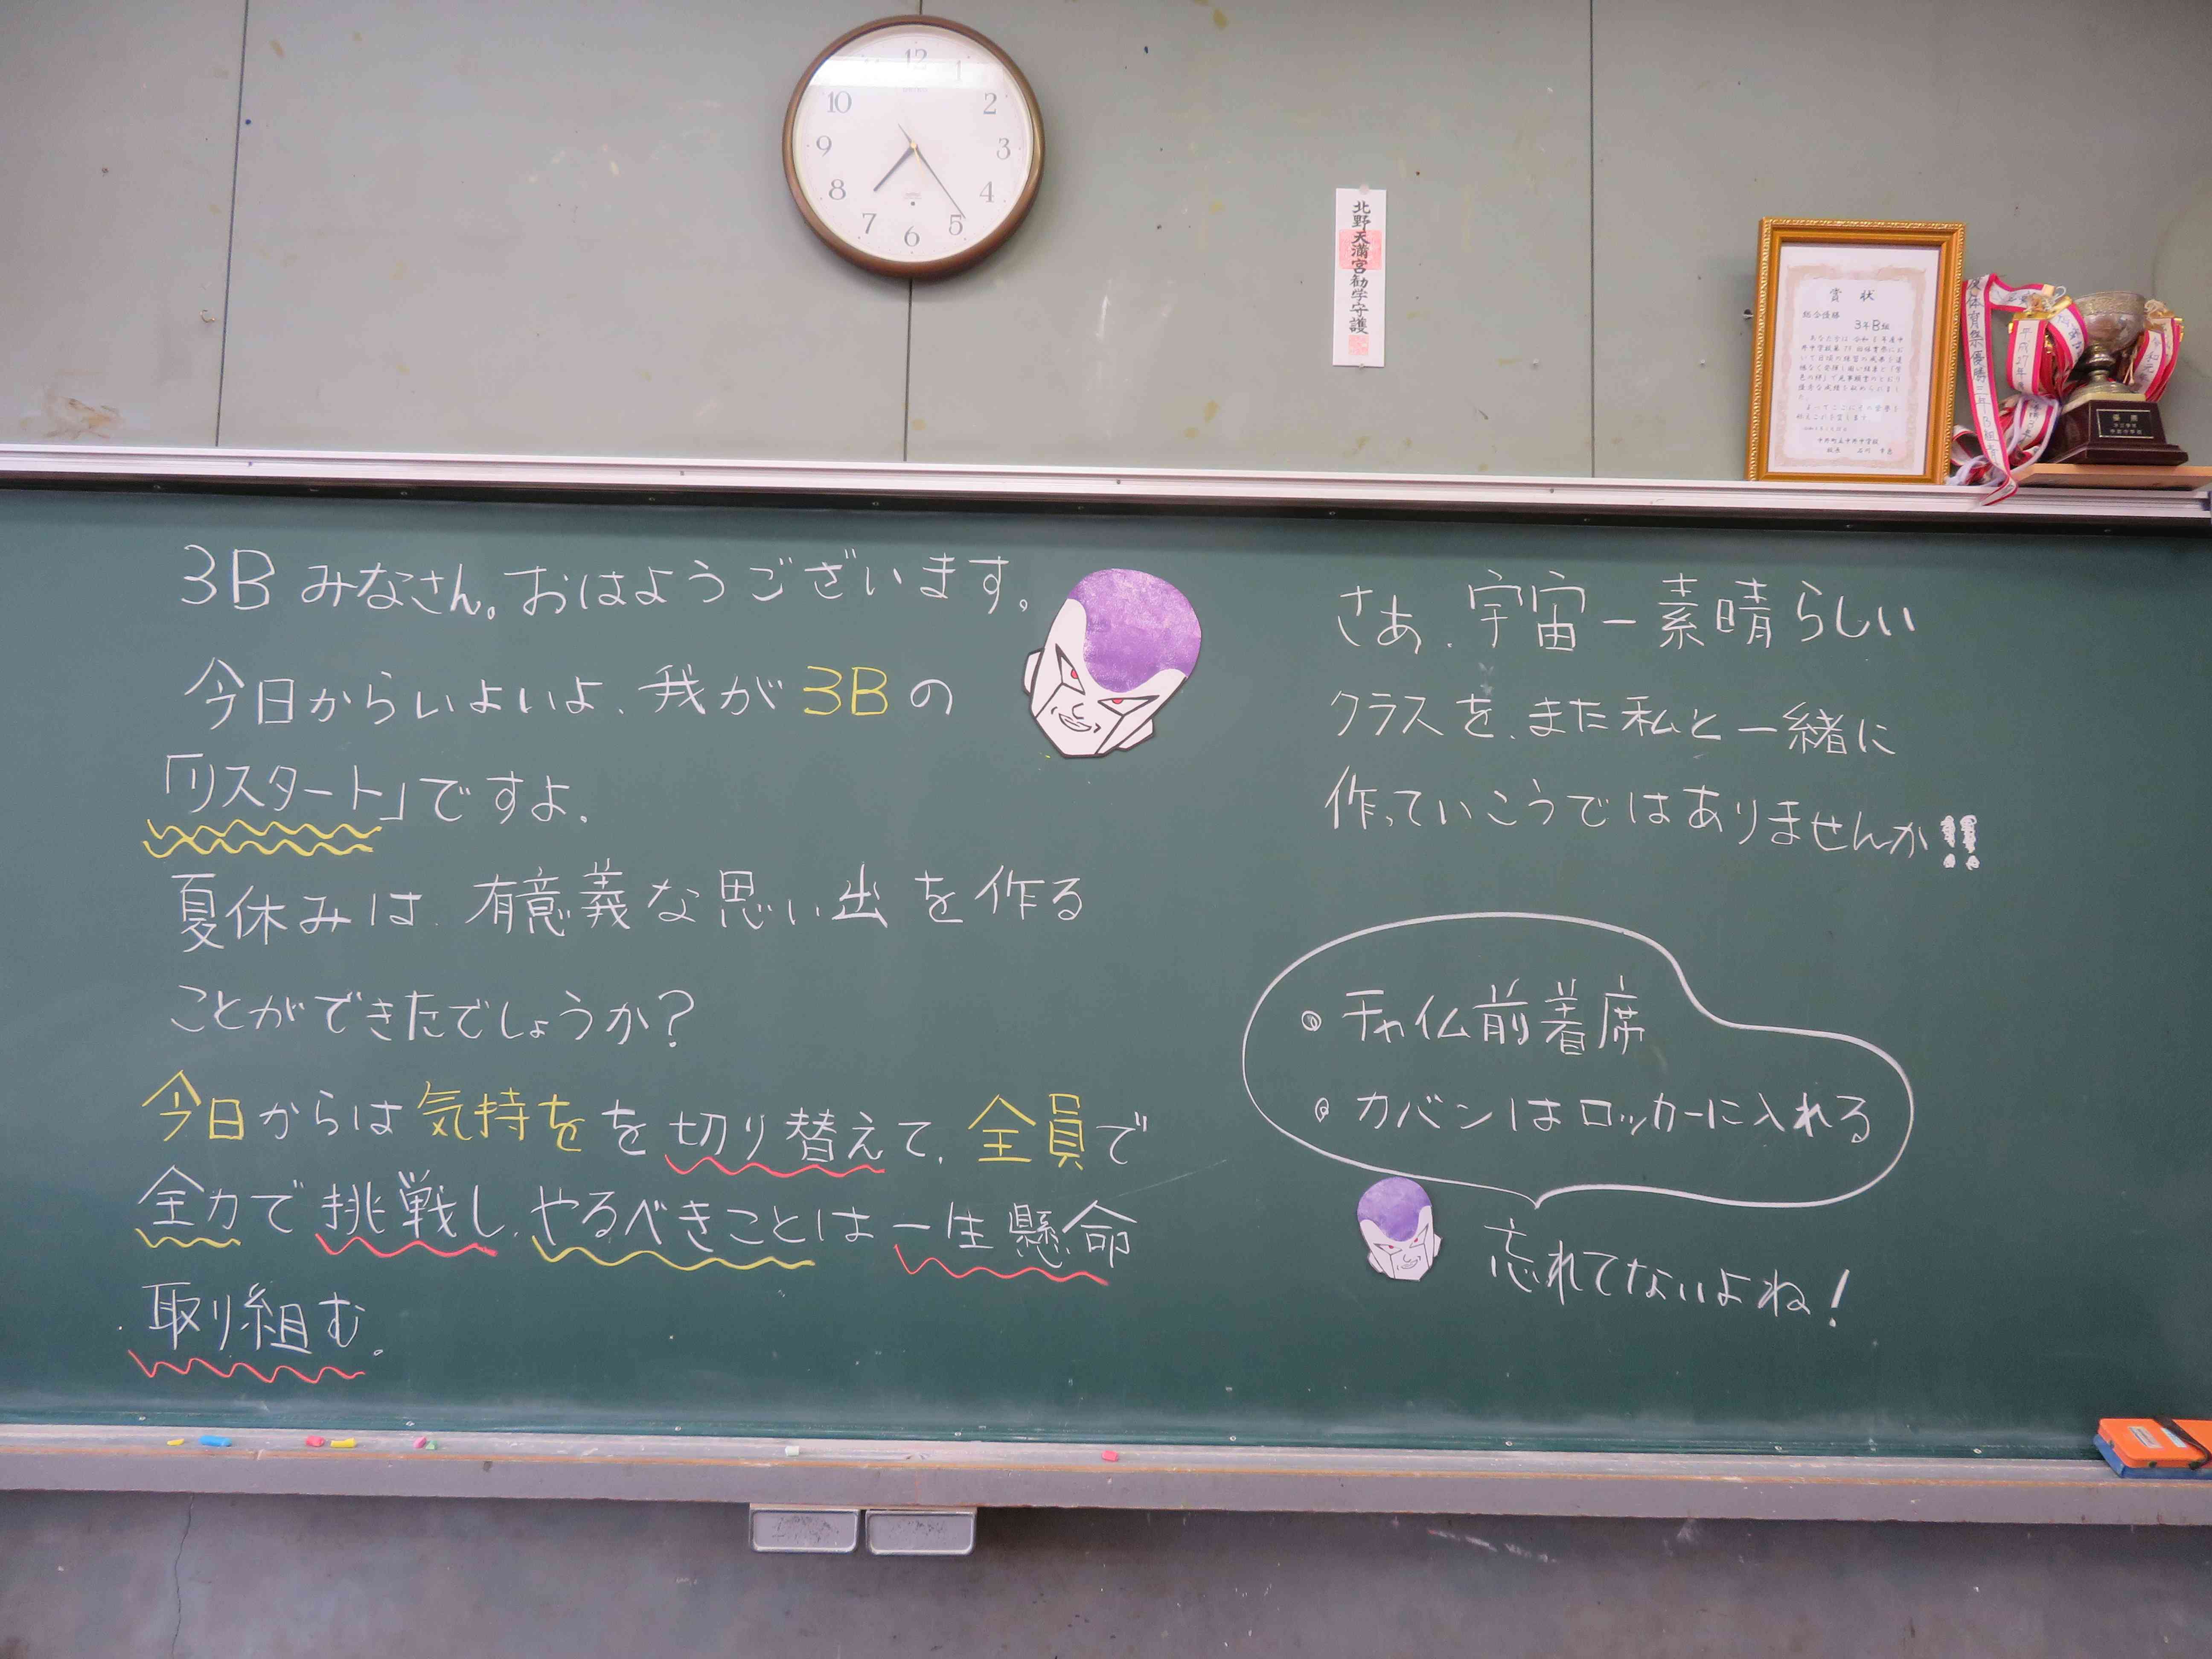 12
1
2
3
4
5
6
7
8
9
10
北野天満宮勧学守護
賞状
総合優勝
3年B組
体育祭優勝三年B組
平成27年
優勝
3Bみなさん。おはようございます。
今日からいよいよ、我が3Bの
「リスタート」ですよ。
夏休みは、有意義な思い出を作る
ことができたでしょうか？
今日からは気持ををを切り替えて、全員で
全力で挑戦し、やるべきことは一生懸命
取り組む。
さあ、宇宙一素晴らしい
クラスを、また私と一緒に
作っていこうではありませんか!!
チャイム前着席
カバンはロッカーに入れる
忘れてないよね！